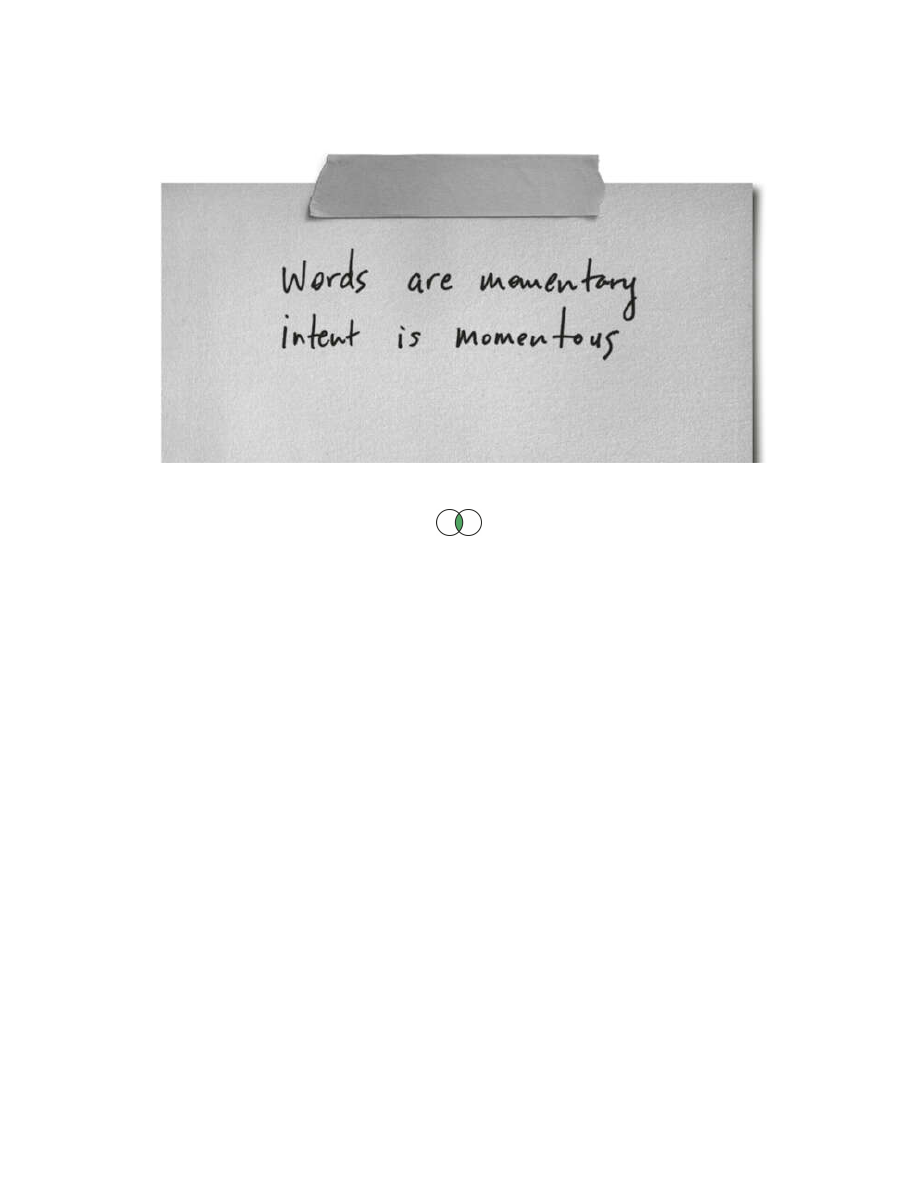 Words are momentary
intent is momentous